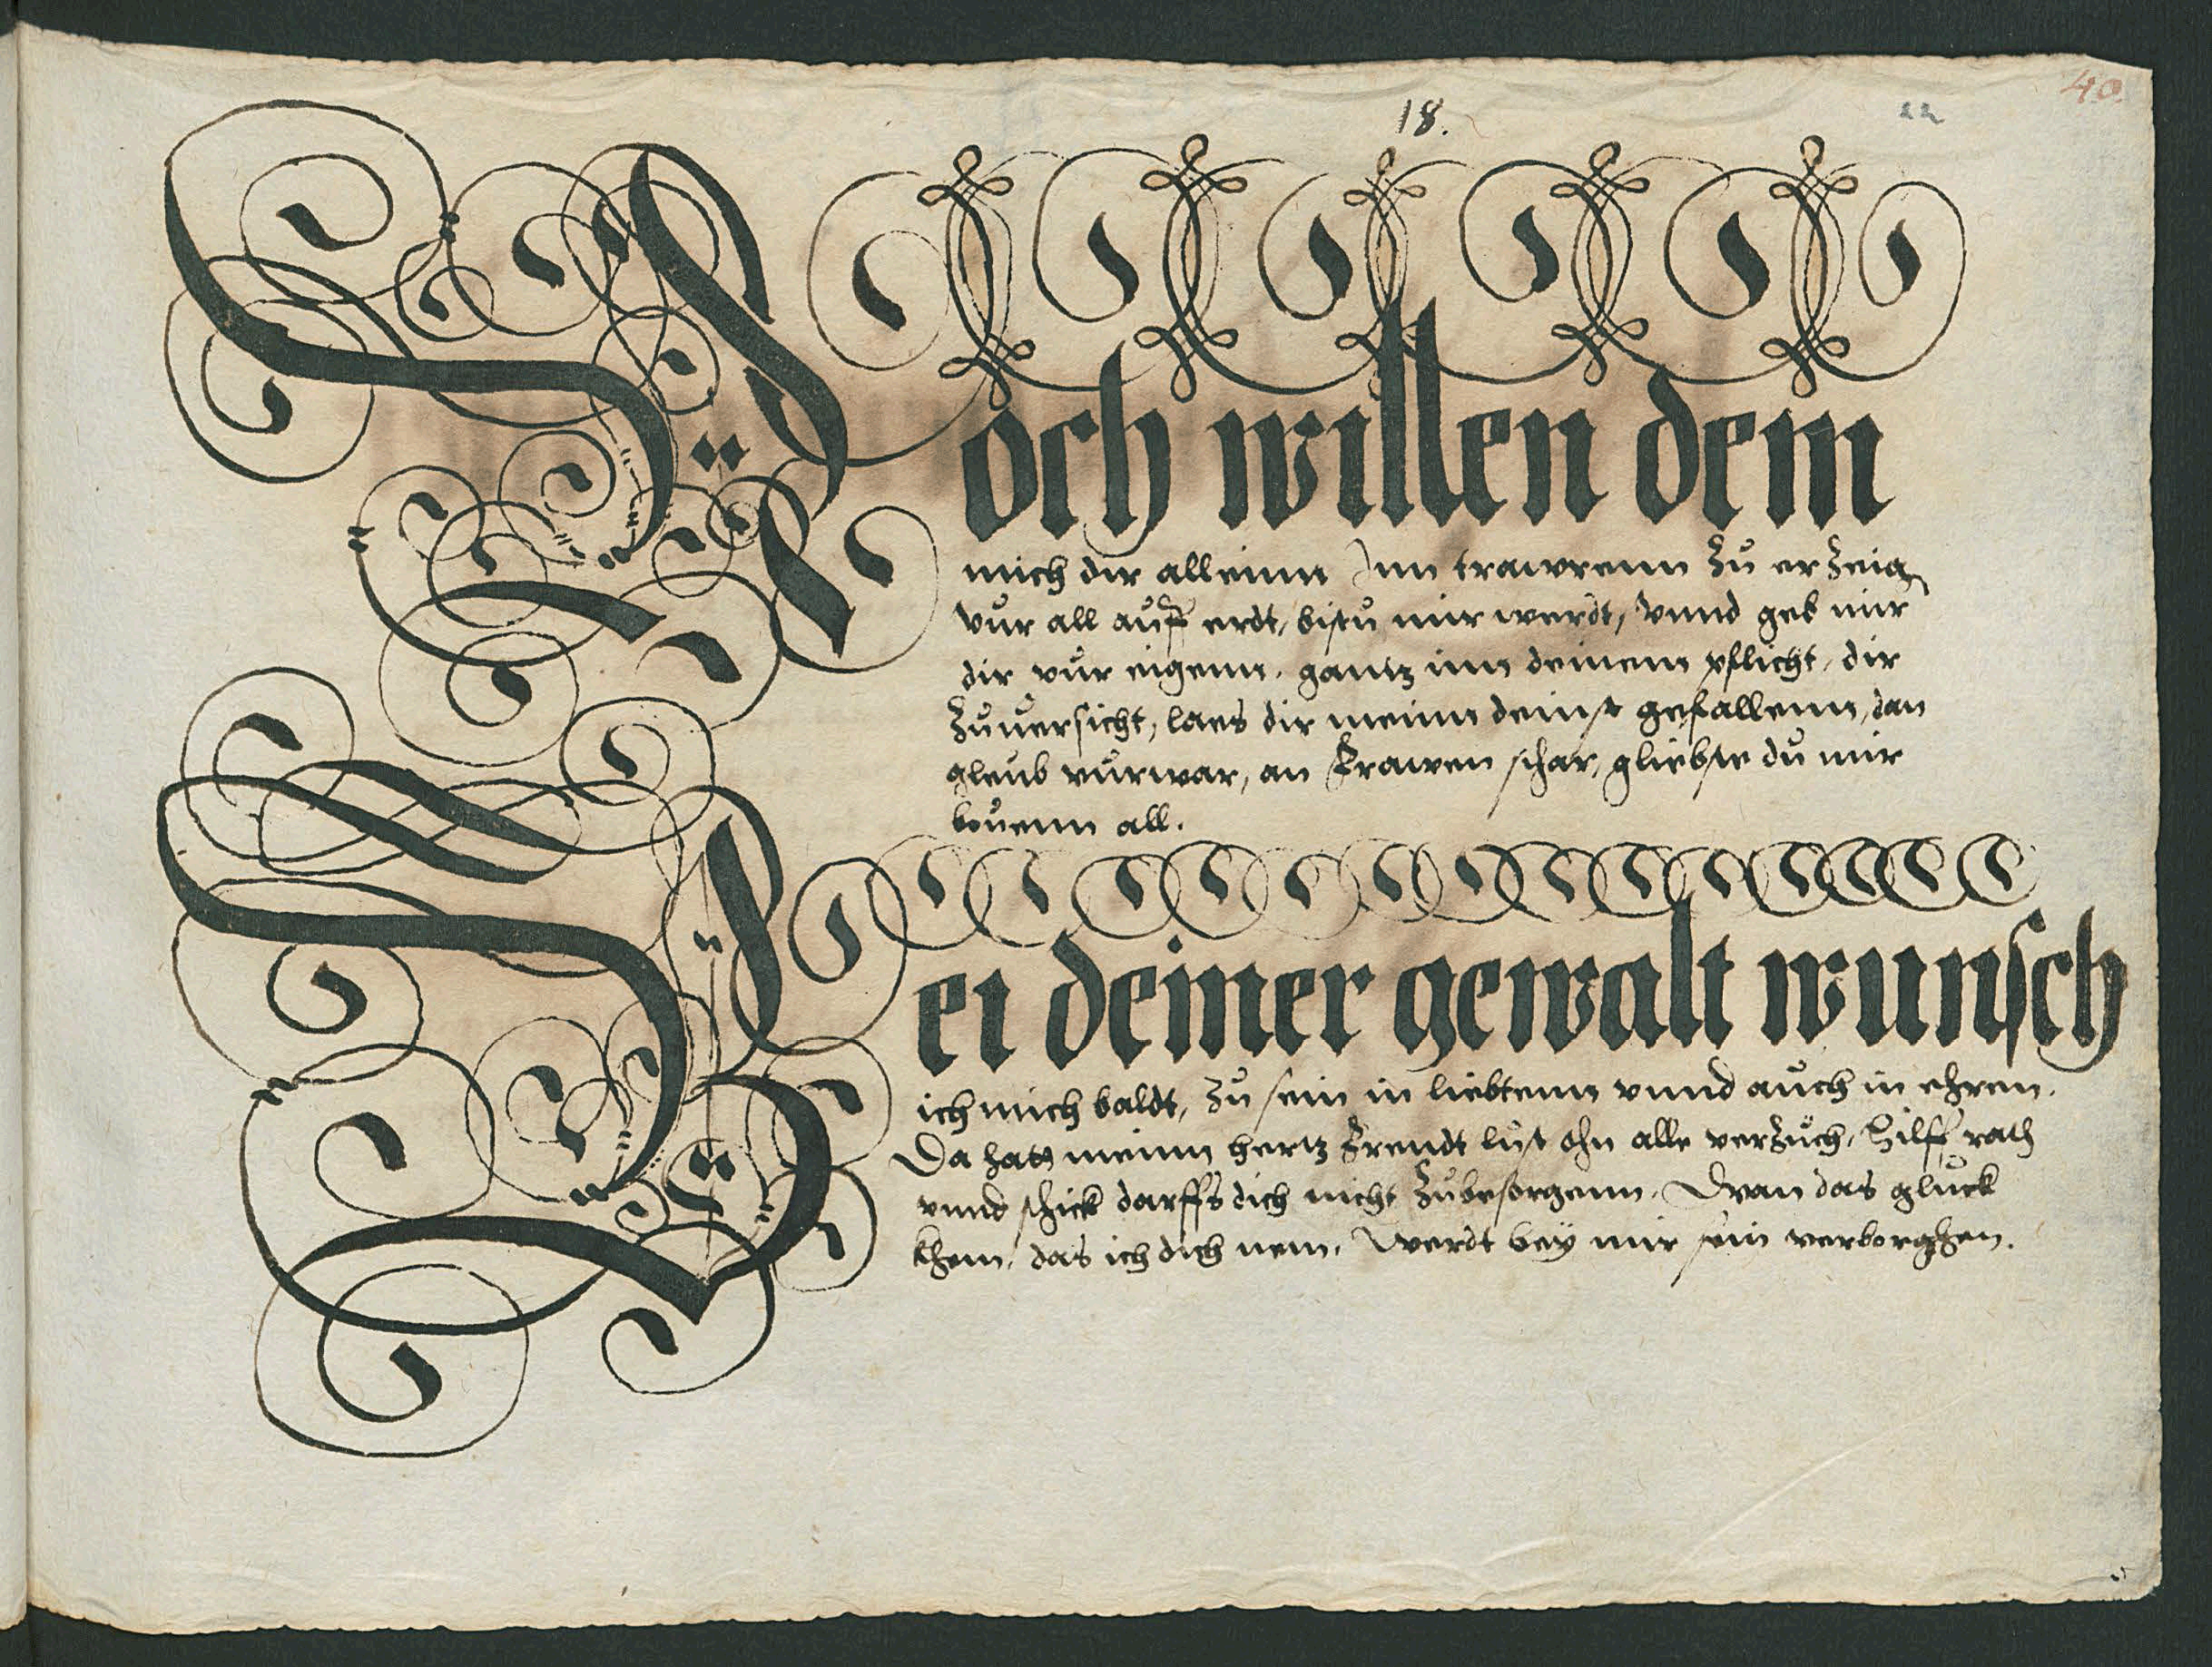 18.
22
40.
Noch willen dem
mich dir alleinn Inn trawrenn zu erzeig
vur all auff erdt, bistu mir werdt, vnnd geb mir
dir vur eigenn, gantz inn deinem pflicht, dir
zuuersicht, laes dir meinn deinst gefallenn, dan
gleub vurwar, an frawen schar, gliebste du mir
bouenn all.
Bei deiner gewalt wunsch
ich mich baldt, zu sein in liebtenn vnnd auch in ehren.
Da hatt meinn hertz frendt lust ohn alle verzuch, Hilff rath
vnnd schick darffs dich nicht zubesorgenn. Dwan das gluck
khem, das ich dich nem, werdt bey mir sein verborghen.